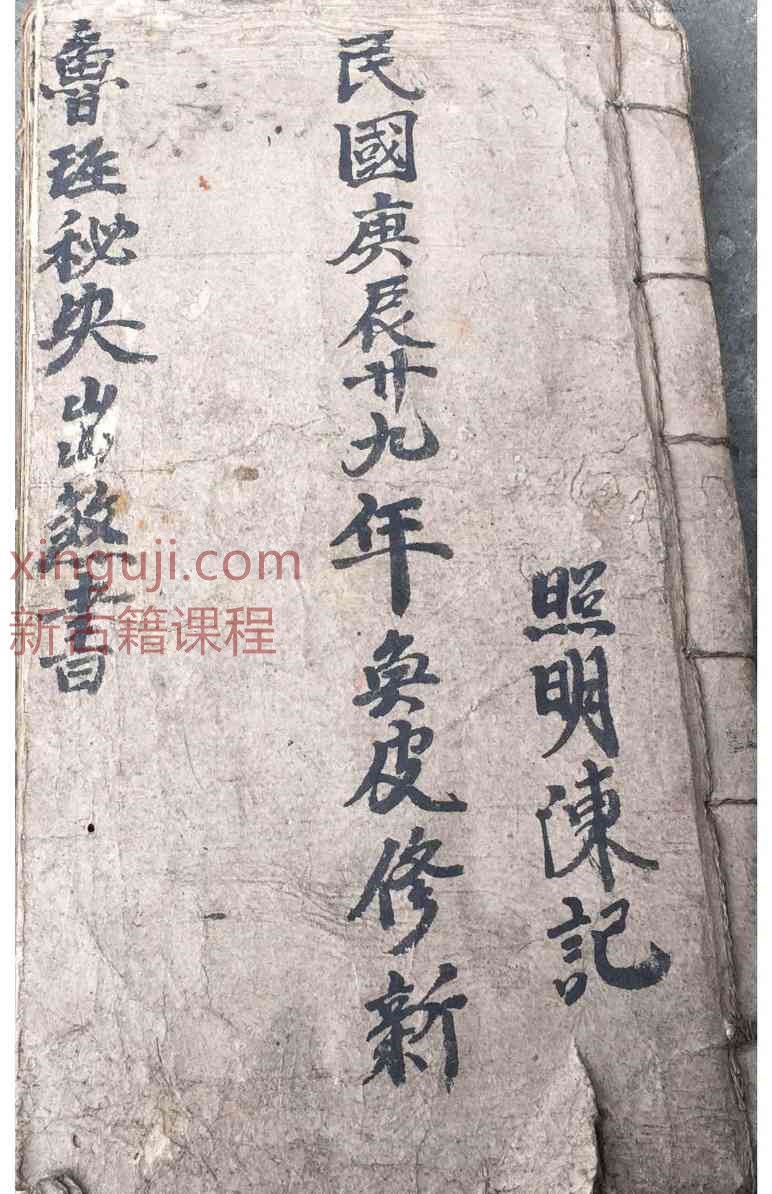 照明陳記
民國庚辰廿九年奐皮修新
魯班秘央出煞書
xinguji.com
新古籍课程